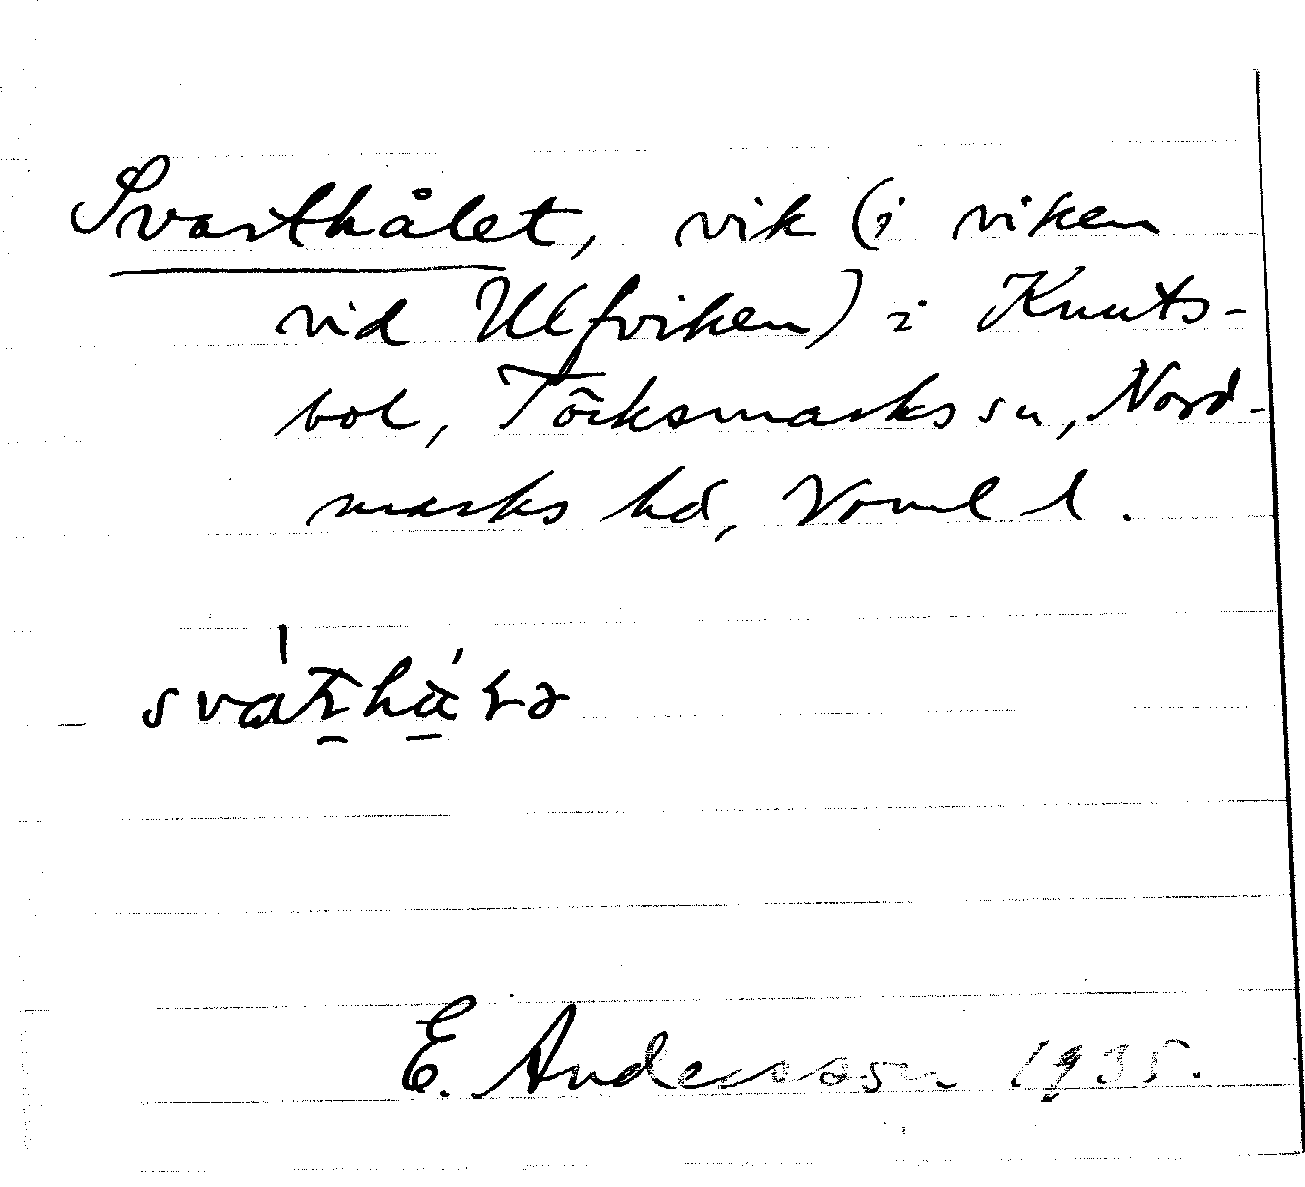 Svarthålet, vik (i viken
vid Ulfviken) i Knuts-
bol, Töcksmarks sn, Nord-
marks hd, Vrml l.
E. Andersson 1935.